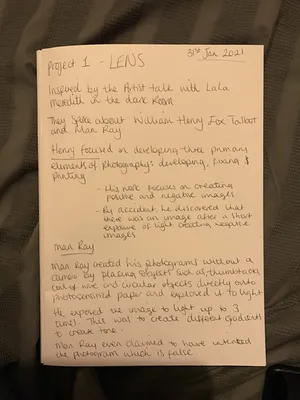 31st Jan 2021
Project 1 - LENS
Inspired by the Artist talk with Lala
Meredith in the dark Room
They Spoke about William Henry Fox Talbot
and Man Ray
Henry focused on developing three primary
elements of photography: developing, fixing &
printing
- His work focuses on creating
positive and negative images
- By accident he discovered that
there was an image after a short
exposure of light creating negative
images
Man Ray
Man Ray created his photograms without a
camera by placing objects such as thumbtacks,
coil of wire and circular objects directly onto
photosensitized paper and exposed it to light
He exposed the image to light up to 3
times. This was to create different gradients
to create tone.
Man Ray even claimed to have invented
the photogram which is false